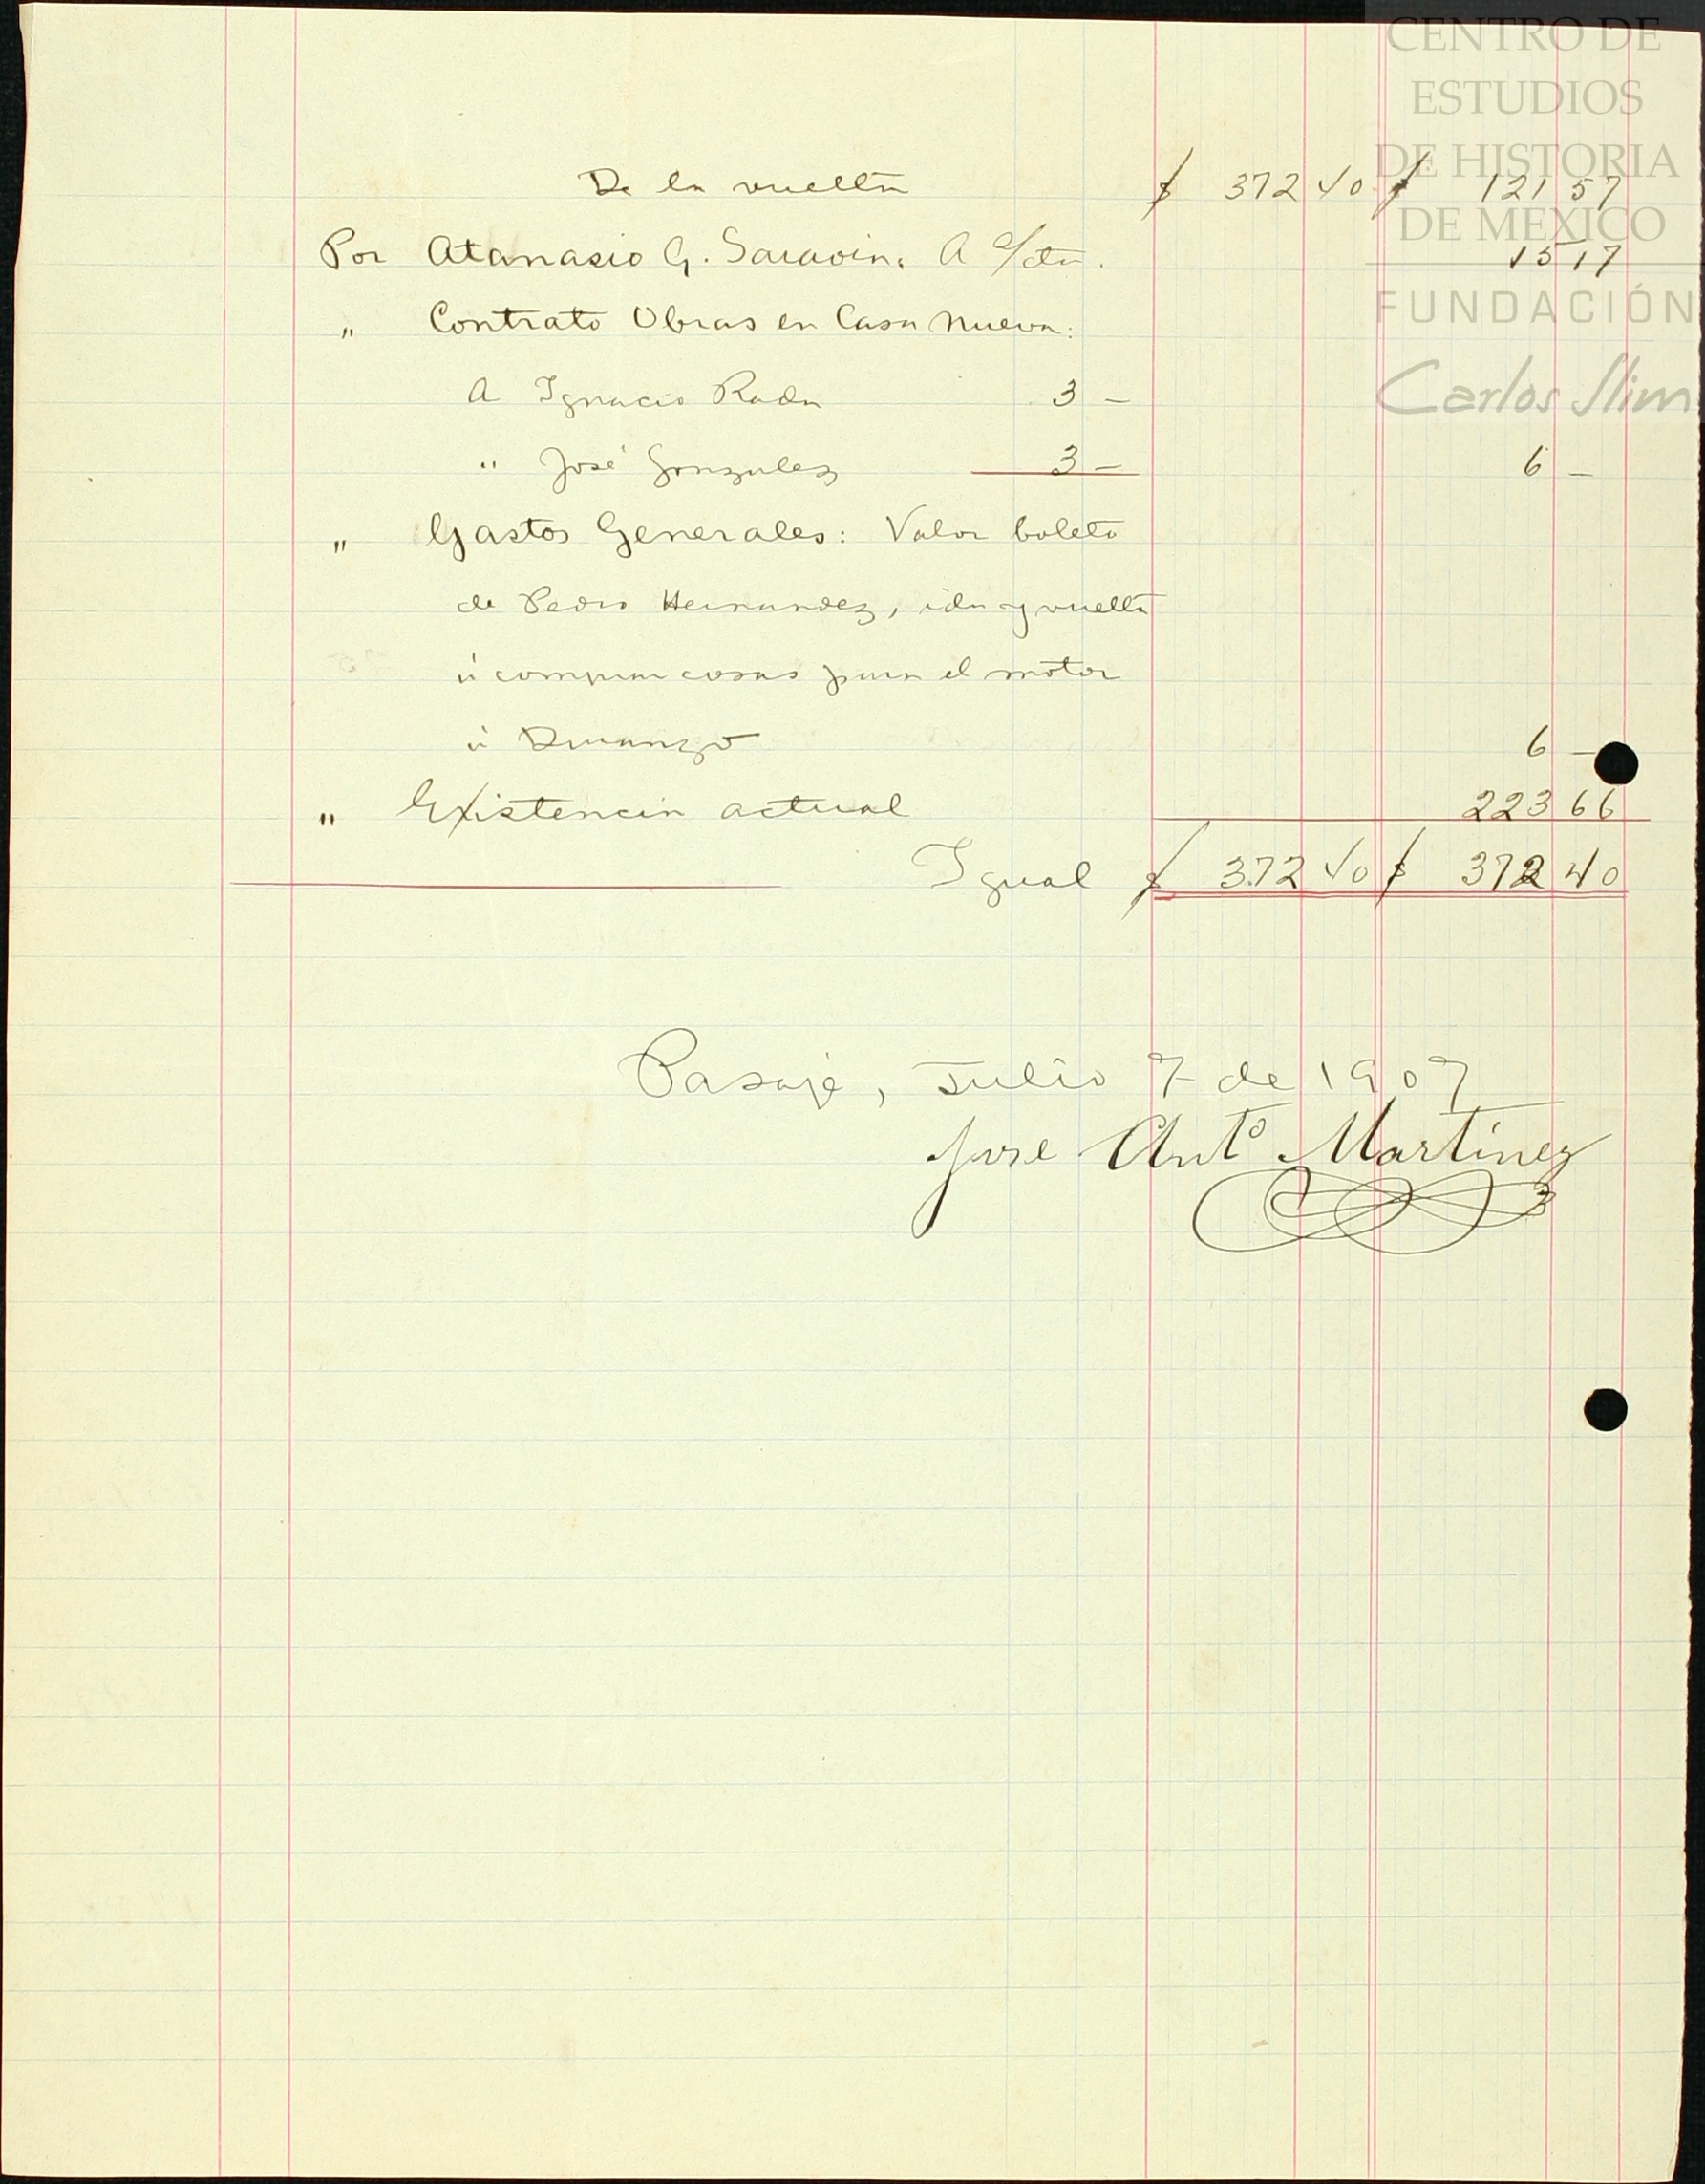 CENTRO DE
ESTUDIOS
DE HISTORIA
DE MÉXICO
FUNDACIÓN
Carlos Slim
De la vuelta $ 372 40 $ 121 57
Por Atanasio G. Saravia. A c/cta. 15 17
" Contrato Obras en Casa Nueva:
A Ignacio Rada 3 —
" José Gonzalez 3 — 6 —
" Gastos Generales: Valor boleto
de Pedro Hernandez, ida y vuelta
á comprar cosas para el motor
á Durango 6 —
" Existencia actual 223 66
Igual $ 372 40 $ 372 40
Pasaje, Julio 7 de 1907
Jose Anto Martinez